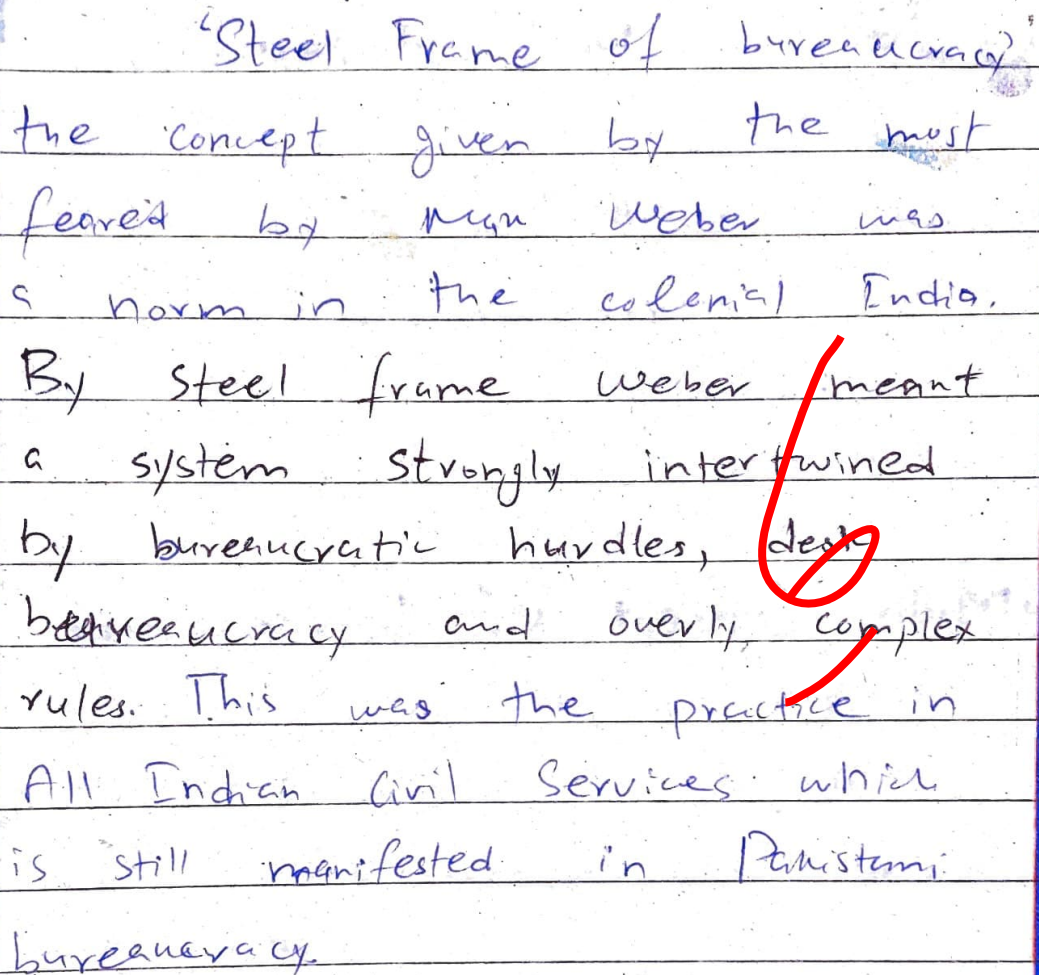 'Steel Frame of bureaucracy'
the concept given by the most
feared by Max Weber was
a norm in the colonial India.
By steel frame Weber meant
a system strongly intertwined
by bureaucratic hurdles, desk
bureaucracy and overly complex
rules. This was the practice in
All Indian Civil Services which
is still manifested in Pakistani
bureaucracy.